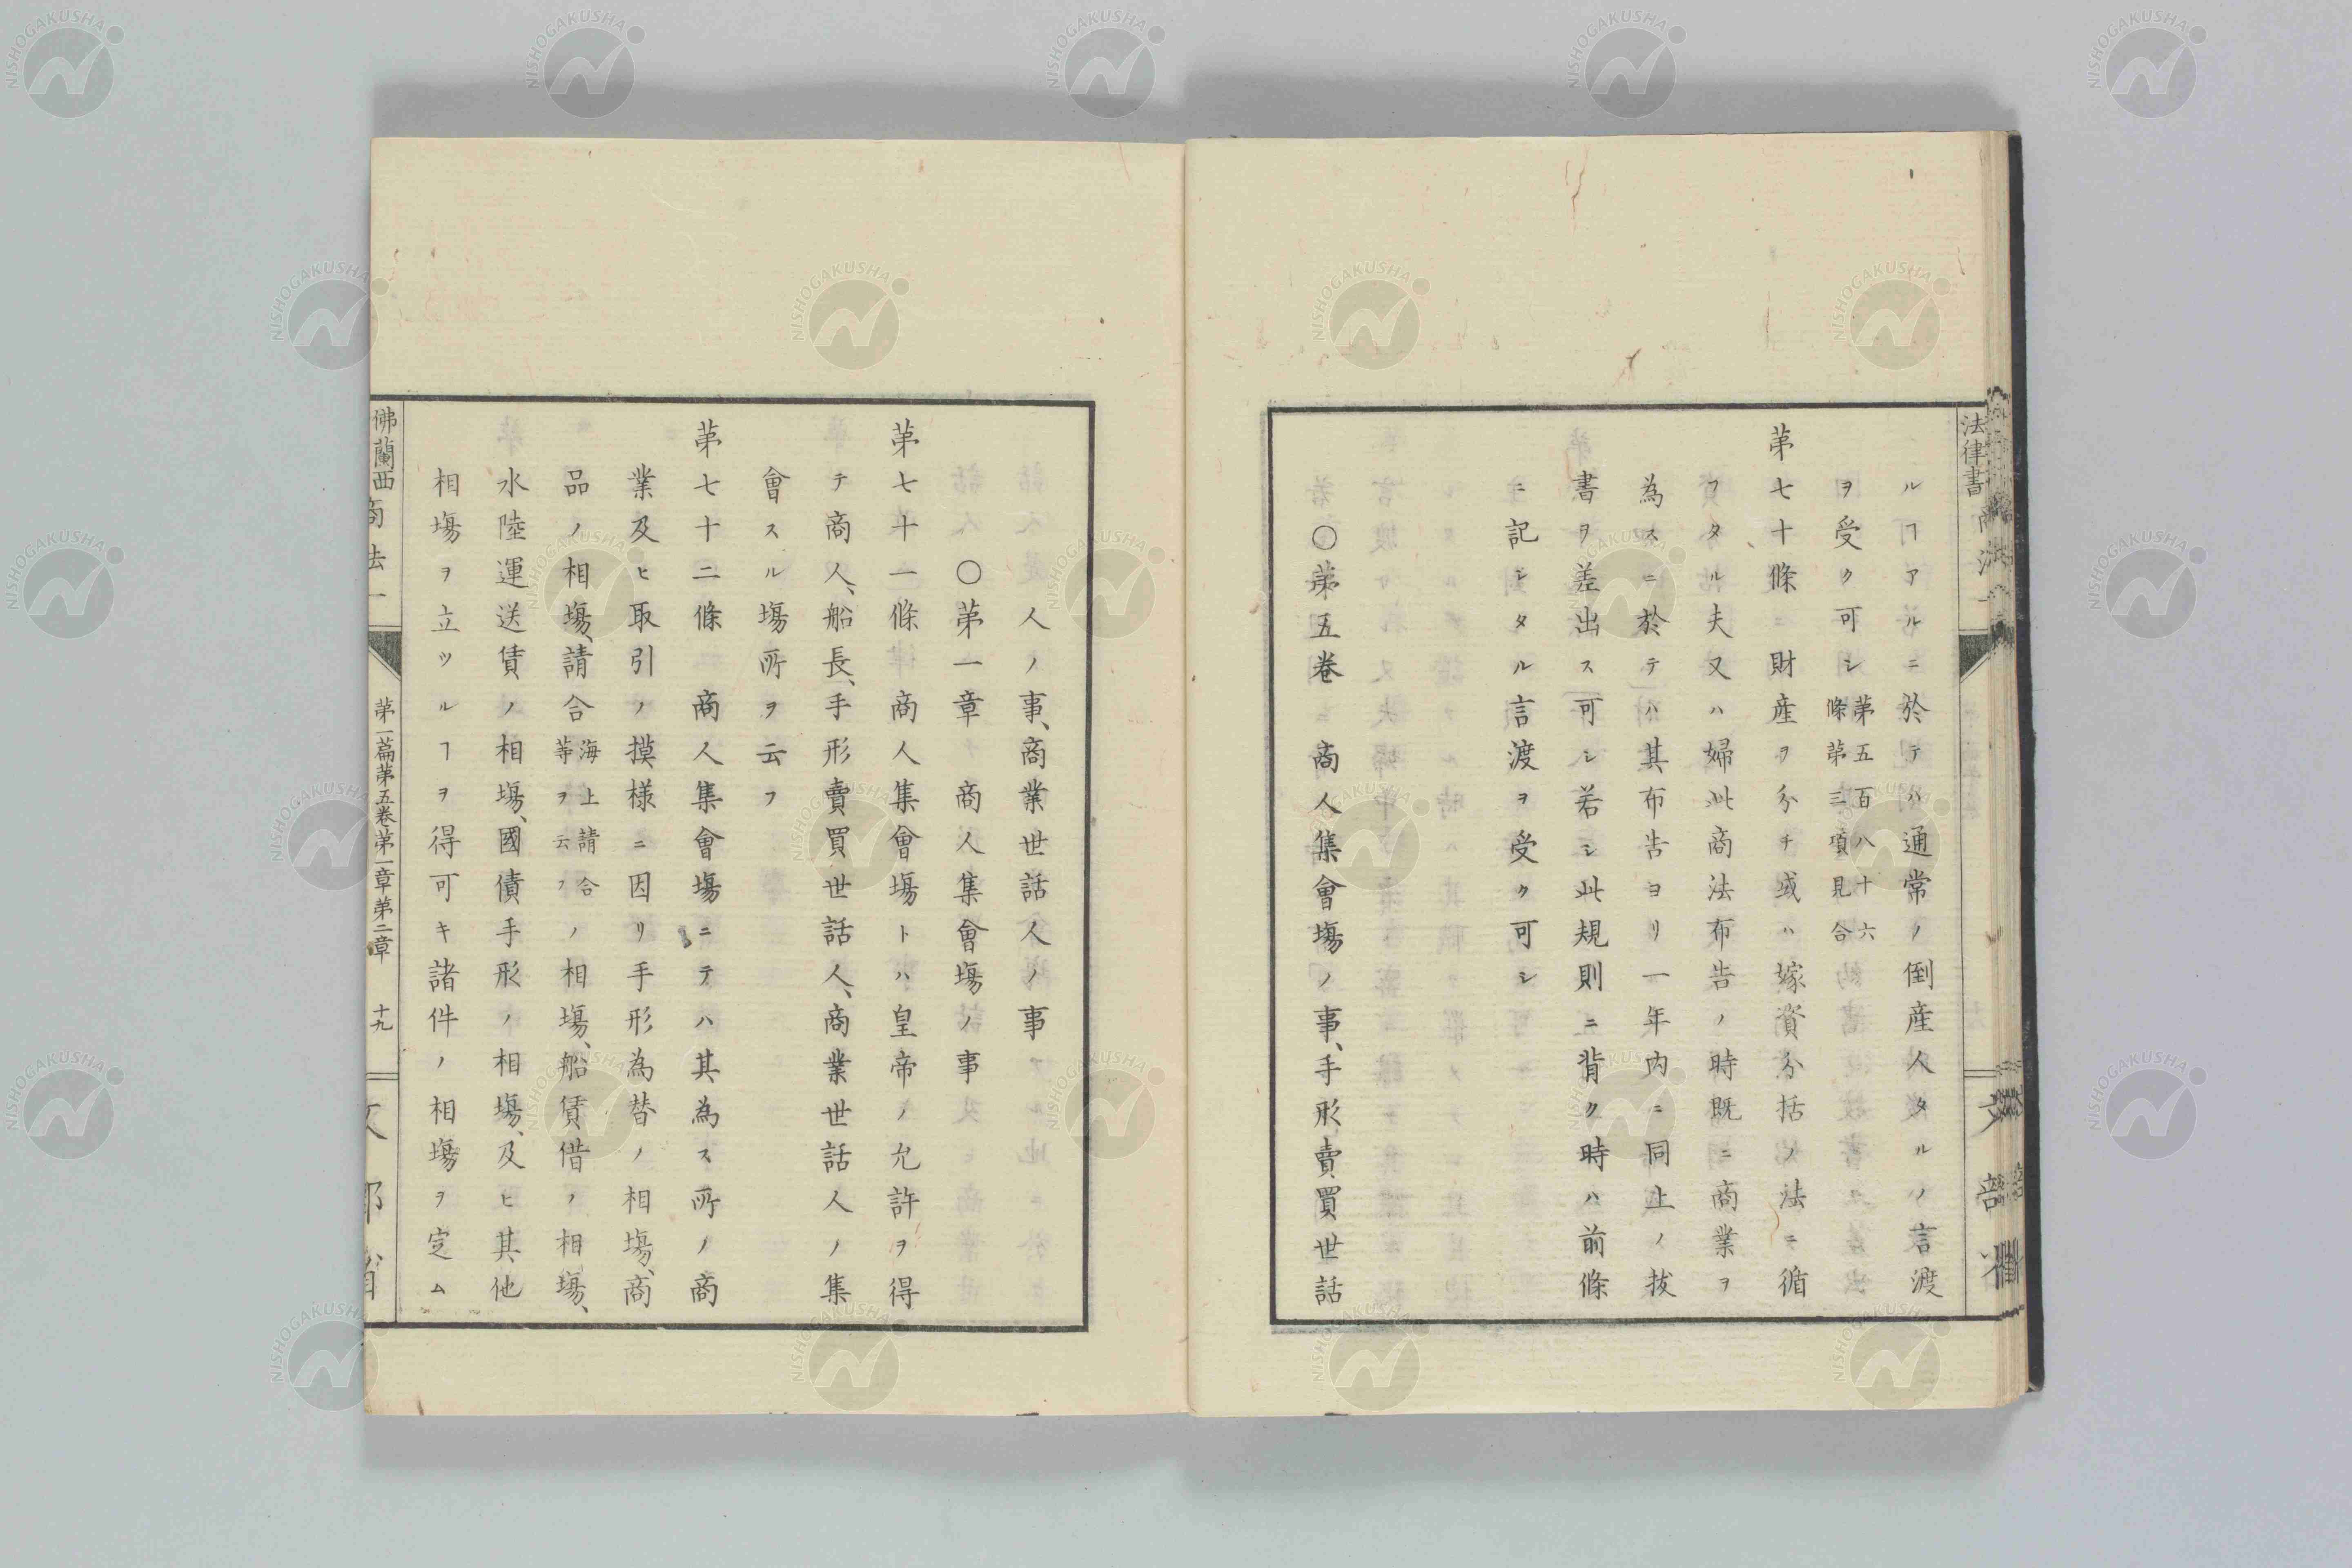 法律書
ルヿアルニ於テハ通常ノ倒産人タルノ言渡
ヲ受ク可シ第五百八十六條第三項見合
第七十條 財産ヲ分チ或ハ嫁資分括ノ法ニ循
フタル夫又ハ婦此商法布告ノ時既ニ商業ヲ
為スニ於テハ其布告ヨリ一年内ニ同上ノ抜
書ヲ差出ス可シ若シ此規則ニ背ク時ハ前條
ニ記シタル言渡ヲ受ク可シ
〇第五卷 商人集會塲ノ事、手形賣買世話
人ノ事、商業世話人ノ事
〇第一章 商人集會塲ノ事
第七十一條 商人集會塲トハ皇帝ノ允許ヲ得
テ商人、船長、手形賣買世話人、商業世話人ノ集
會スル塲所ヲ云フ
第七十二條 商人集會塲ニテハ其為ス所ノ商
業及ヒ取引ノ摸様ニ因リ手形為替ノ相塲、商
品ノ相塲、請合海上請合等ヲ云フノ相塲、船賃借ノ相塲、
水陸運送賃ノ相塲、國債手形ノ相塲、及ヒ其他
相塲ヲ立ツルヿヲ得可キ諸件ノ相塲ヲ定ム
佛蘭西商法一
第一篇第五卷第一章第二章
十九
NISHOGAKUSHA